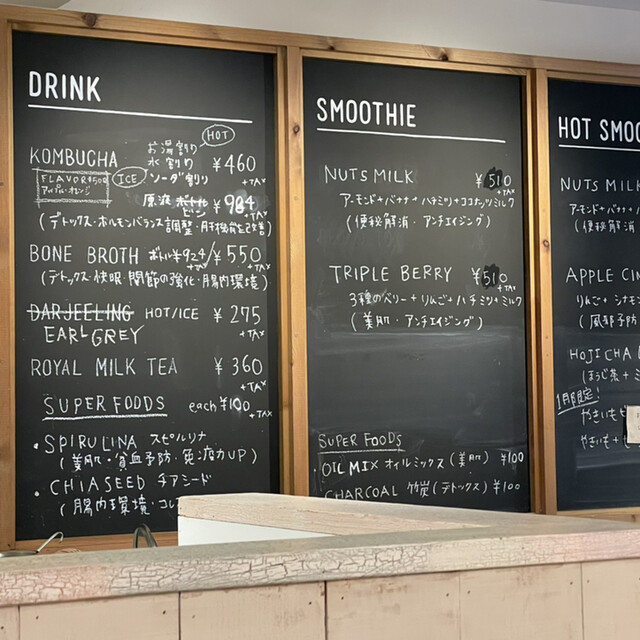 DRINK
お湯割り HOT
KOMBUCHA 水割り ¥460
+TAX
FLAVOR ICE ソーダ割り
原液
(デトックス・ホルモンバランス調整・肝機能を改善)
BONE BROTH ボトル¥924/¥550
+TAX
(デトックス・快眠・関節の強化・腸内環境)
DARJEELING HOT/ICE ¥275
+TAX
EARL GREY
ROYAL MILK TEA ¥360
+TAX
SUPER FOODS each ¥100
+TAX
・SPIRULINA スピルリナ
(美肌・貧血予防・免疫力UP)
・CHIASEED チアシード
(腸内環境・コレ
SMOOTHIE
NUTS MILK ¥510
+TAX
アーモンド+バナナ+ハチミツ+ココナッツミルク
(便秘解消・アンチエイジング)
TRIPLE BERRY ¥510
+TAX
3種のベリー+りんご+ハチミツ+ミルク
(美肌・アンチエイジング)
SUPER FOODS
・OIL MIX オイルミックス(美肌) ¥100
・CHARCOAL 竹炭(デトックス) ¥100
HOT SMOO
NUTS MILK
アーモンド+バナナ+
(便秘解消・
APPLE CIN
りんご+シナモン
(風邪予防
HOJICHA
(ほうじ茶+ミ
1月限定!
やきいも
やきいも+